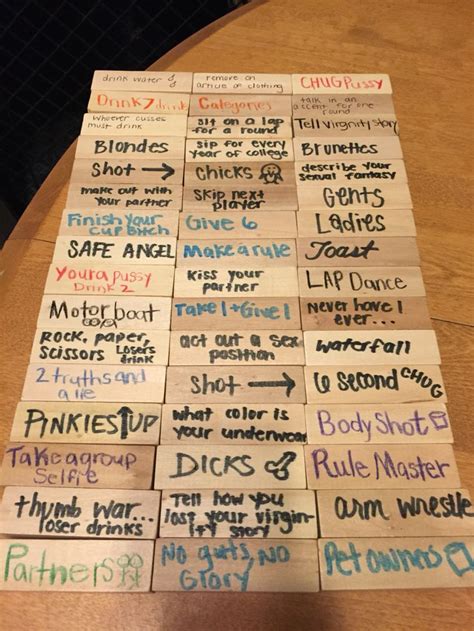 drink water
remove an
article of clothing
CHUG Pussy
Drink 7 drink
Categories
talk in an
accent for one
round
Whoever cusses
must drink
sit on a lap
for a round
Tell Virginity story
Blondes
sip for every
year of college
Brunettes
Shot →
Chicks
describe your
sexual fantasy
make out with
your partner
Skip next
player
Gents
Finish Your
Cup Bitch
Give 6
Ladies
SAFE ANGEL
Make a rule
Toast
Your a pussy
Drink 2
Kiss your
partner
LAP Dance
Motorboat
Take 1 + Give 1
Never have I
ever...
Rock, paper,
scissors Losers
drink
act out a sex
position
waterfall
2 truths and
a lie
Shot →
6 second CHUG
PINKIES ↑ UP
what color is
your underwear
Body Shot
Take a group
Selfie
DICKS
Rule Master
thumb war...
loser drinks
Tell how you
lost your virgin-
ity story
arm wrestle
Partners
No guts, NO
Glory
Pet owners